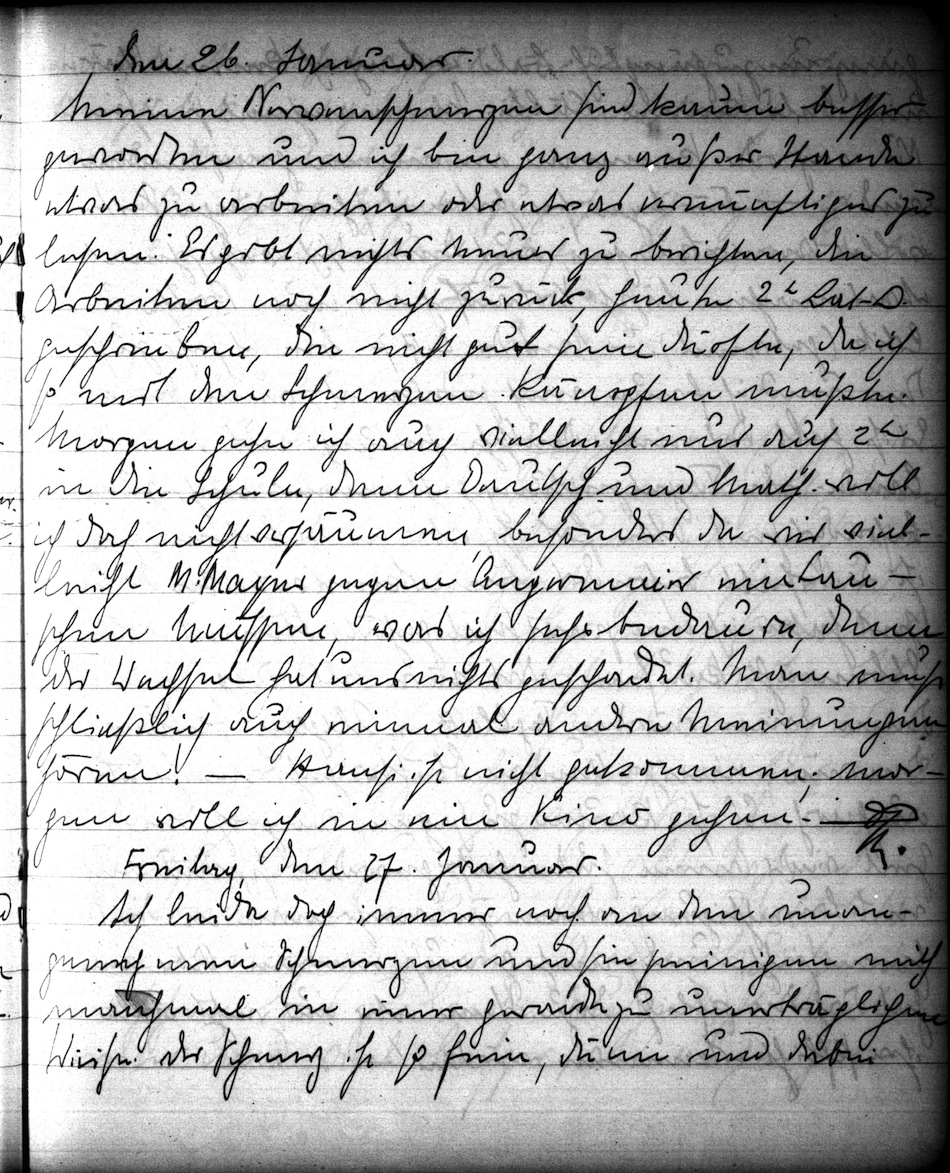 den 26. Januar.
Meine Nervenschmerzen sind kaum besser
geworden und ich bin ganz außer Stande
etwas zu arbeiten oder etwas vernünftiges zu
lesen. Es gibt nichts neues zu berichten, die
Arbeiten noch nicht zurück, heute 2h Lat.
geschrieben, die nicht gut sein dürfte, da ich
so mit den Schmerzen kämpfen mußte.
Morgen gehe ich auch vielleicht nur auf 2h
in die Schule, denn Deutsch und Math. will
ich doch nicht versäumen, besonders da wir viel-
leicht M. Mayer gegen Angermeier eintau-
schen müssen, was ich sehr bedaure, denn
der Wechsel hat uns nichts geschadet. Man muß
schließlich auch einmal andere Meinungen
hören! — Hansi ist nicht gekommen; mor-
gen will ich in ein Kino gehen. —
Freitag, den 27. Januar.
Ich leide doch immer noch an den unan-
genehmen Schmerzen und sie peinigen mich
manchmal in einer geradezu unerträglichen
Weise. Der Schmerz ist so fein, dünn und dabei